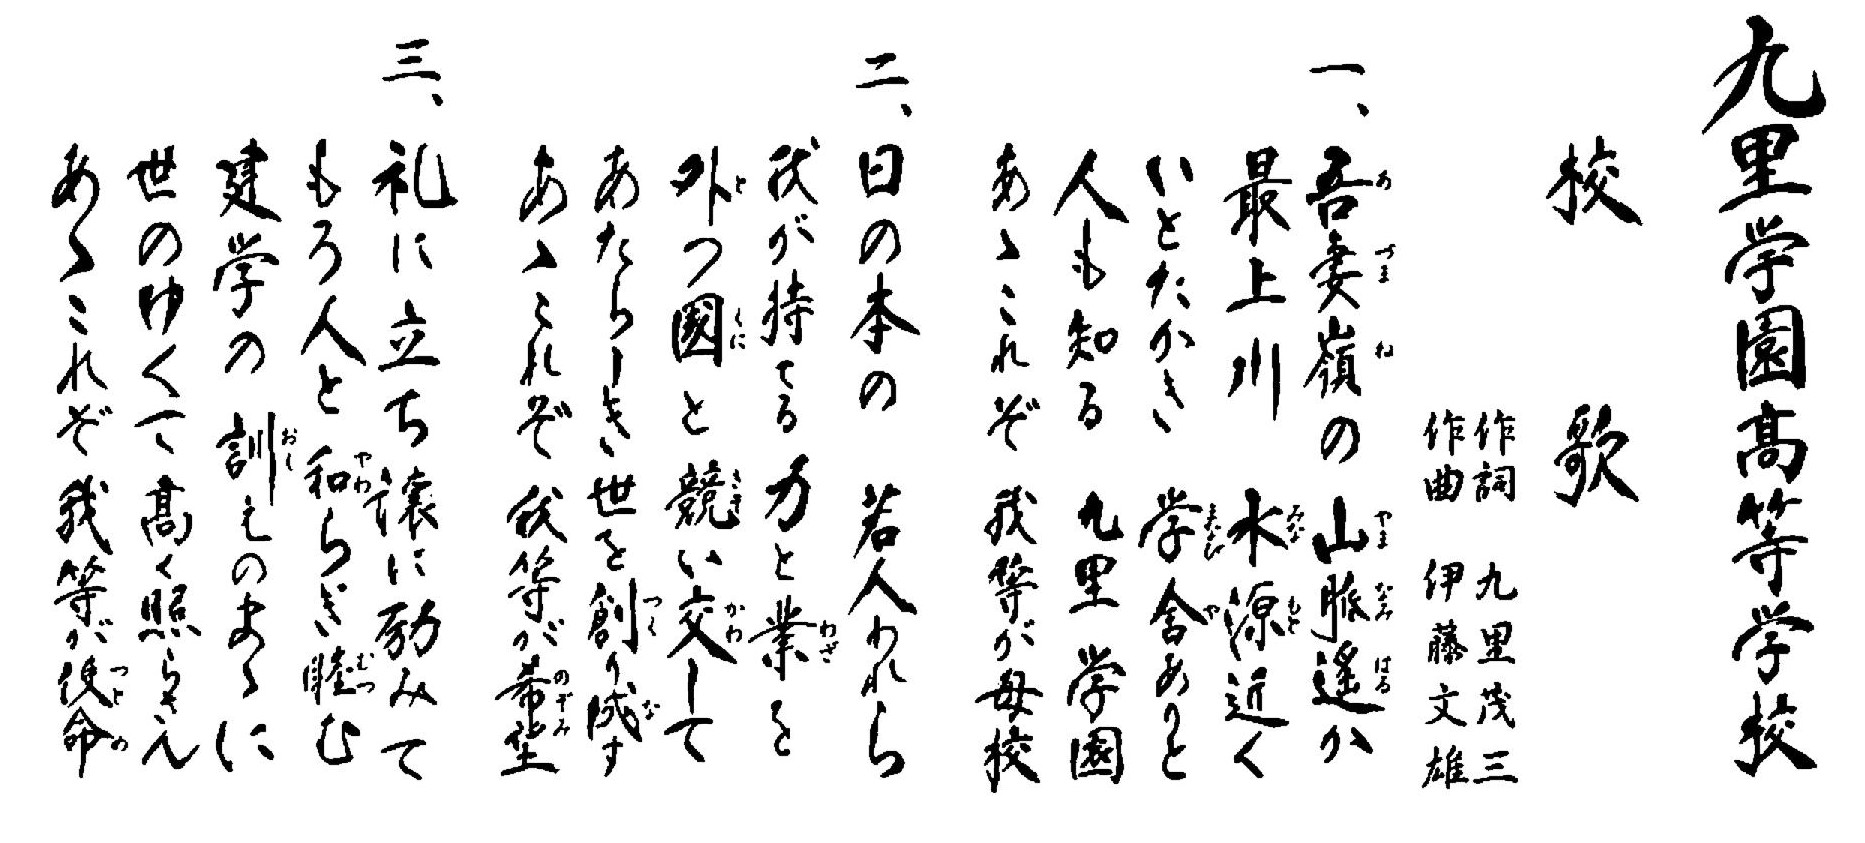 九里学園高等学校
校歌
作詞 九里茂三
作曲 伊藤文雄
一、吾妻嶺の 山脈遥か
最上川 水源近く
いとたかき 学舎ありと
人も知る 九里学園
あゝこれぞ 我等が母校
二、日の本の 若人われら
我が持てる 力と業を
外つ國と 競い交して
あたらしき 世を創り成す
あゝこれぞ 我等が希望
三、礼に立ち 譲に励みて
もろ人と 和らぎ睦む
建学の 訓えのまゝに
世のゆくて 高く照らさん
あゝこれぞ 我等が使命